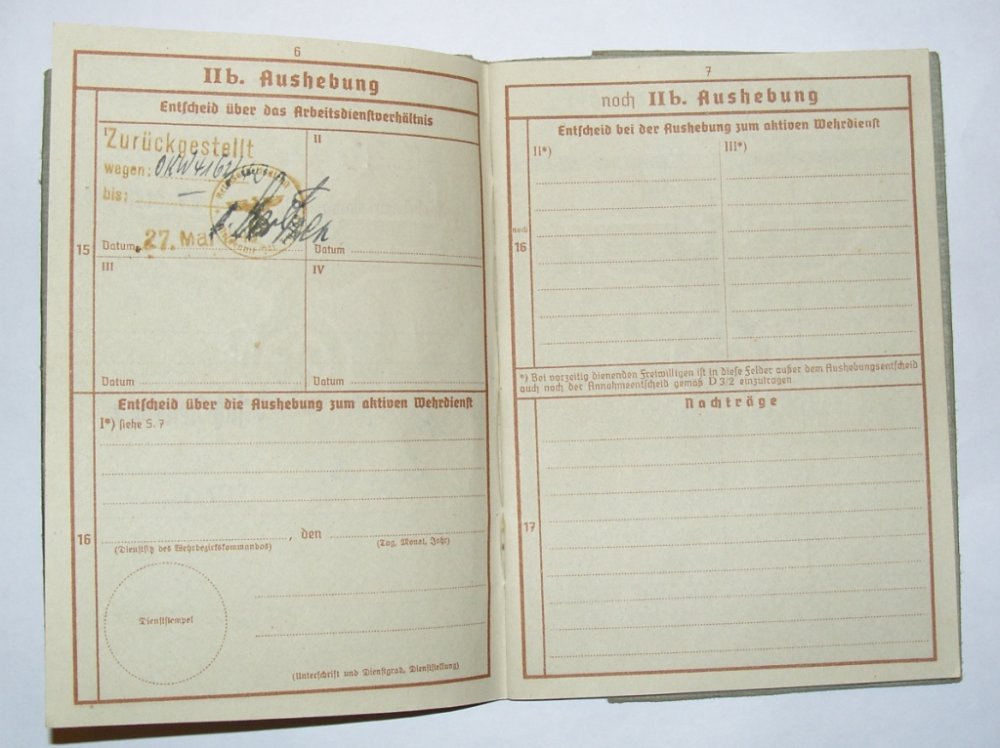 6
IIb. Aushebung
Entscheid über das Arbeitsdienstverhältnis
Zurückgestellt
wegen: OKW
bis: —
27. Mai
15
II
Datum
Datum
III
IV
Datum
Datum
Entscheid über die Aushebung zum aktiven Wehrdienst
I*) siehe S. 7
16
, den
(Dienstsitz des Wehrbezirkskommandos)
(Tag, Monat, Jahr)
Dienststempel
(Unterschrift und Dienstgrad, Dienststellung)
7
noch IIb. Aushebung
Entscheid bei der Aushebung zum aktiven Wehrdienst
II*)
III*)
noch
16
*) Bei vorzeitig dienenden Freiwilligen ist in diese Felder außer dem Aushebungsentscheid
auch noch der Annahmeentscheid gemäß D 3/2 einzutragen
Nachträge
17